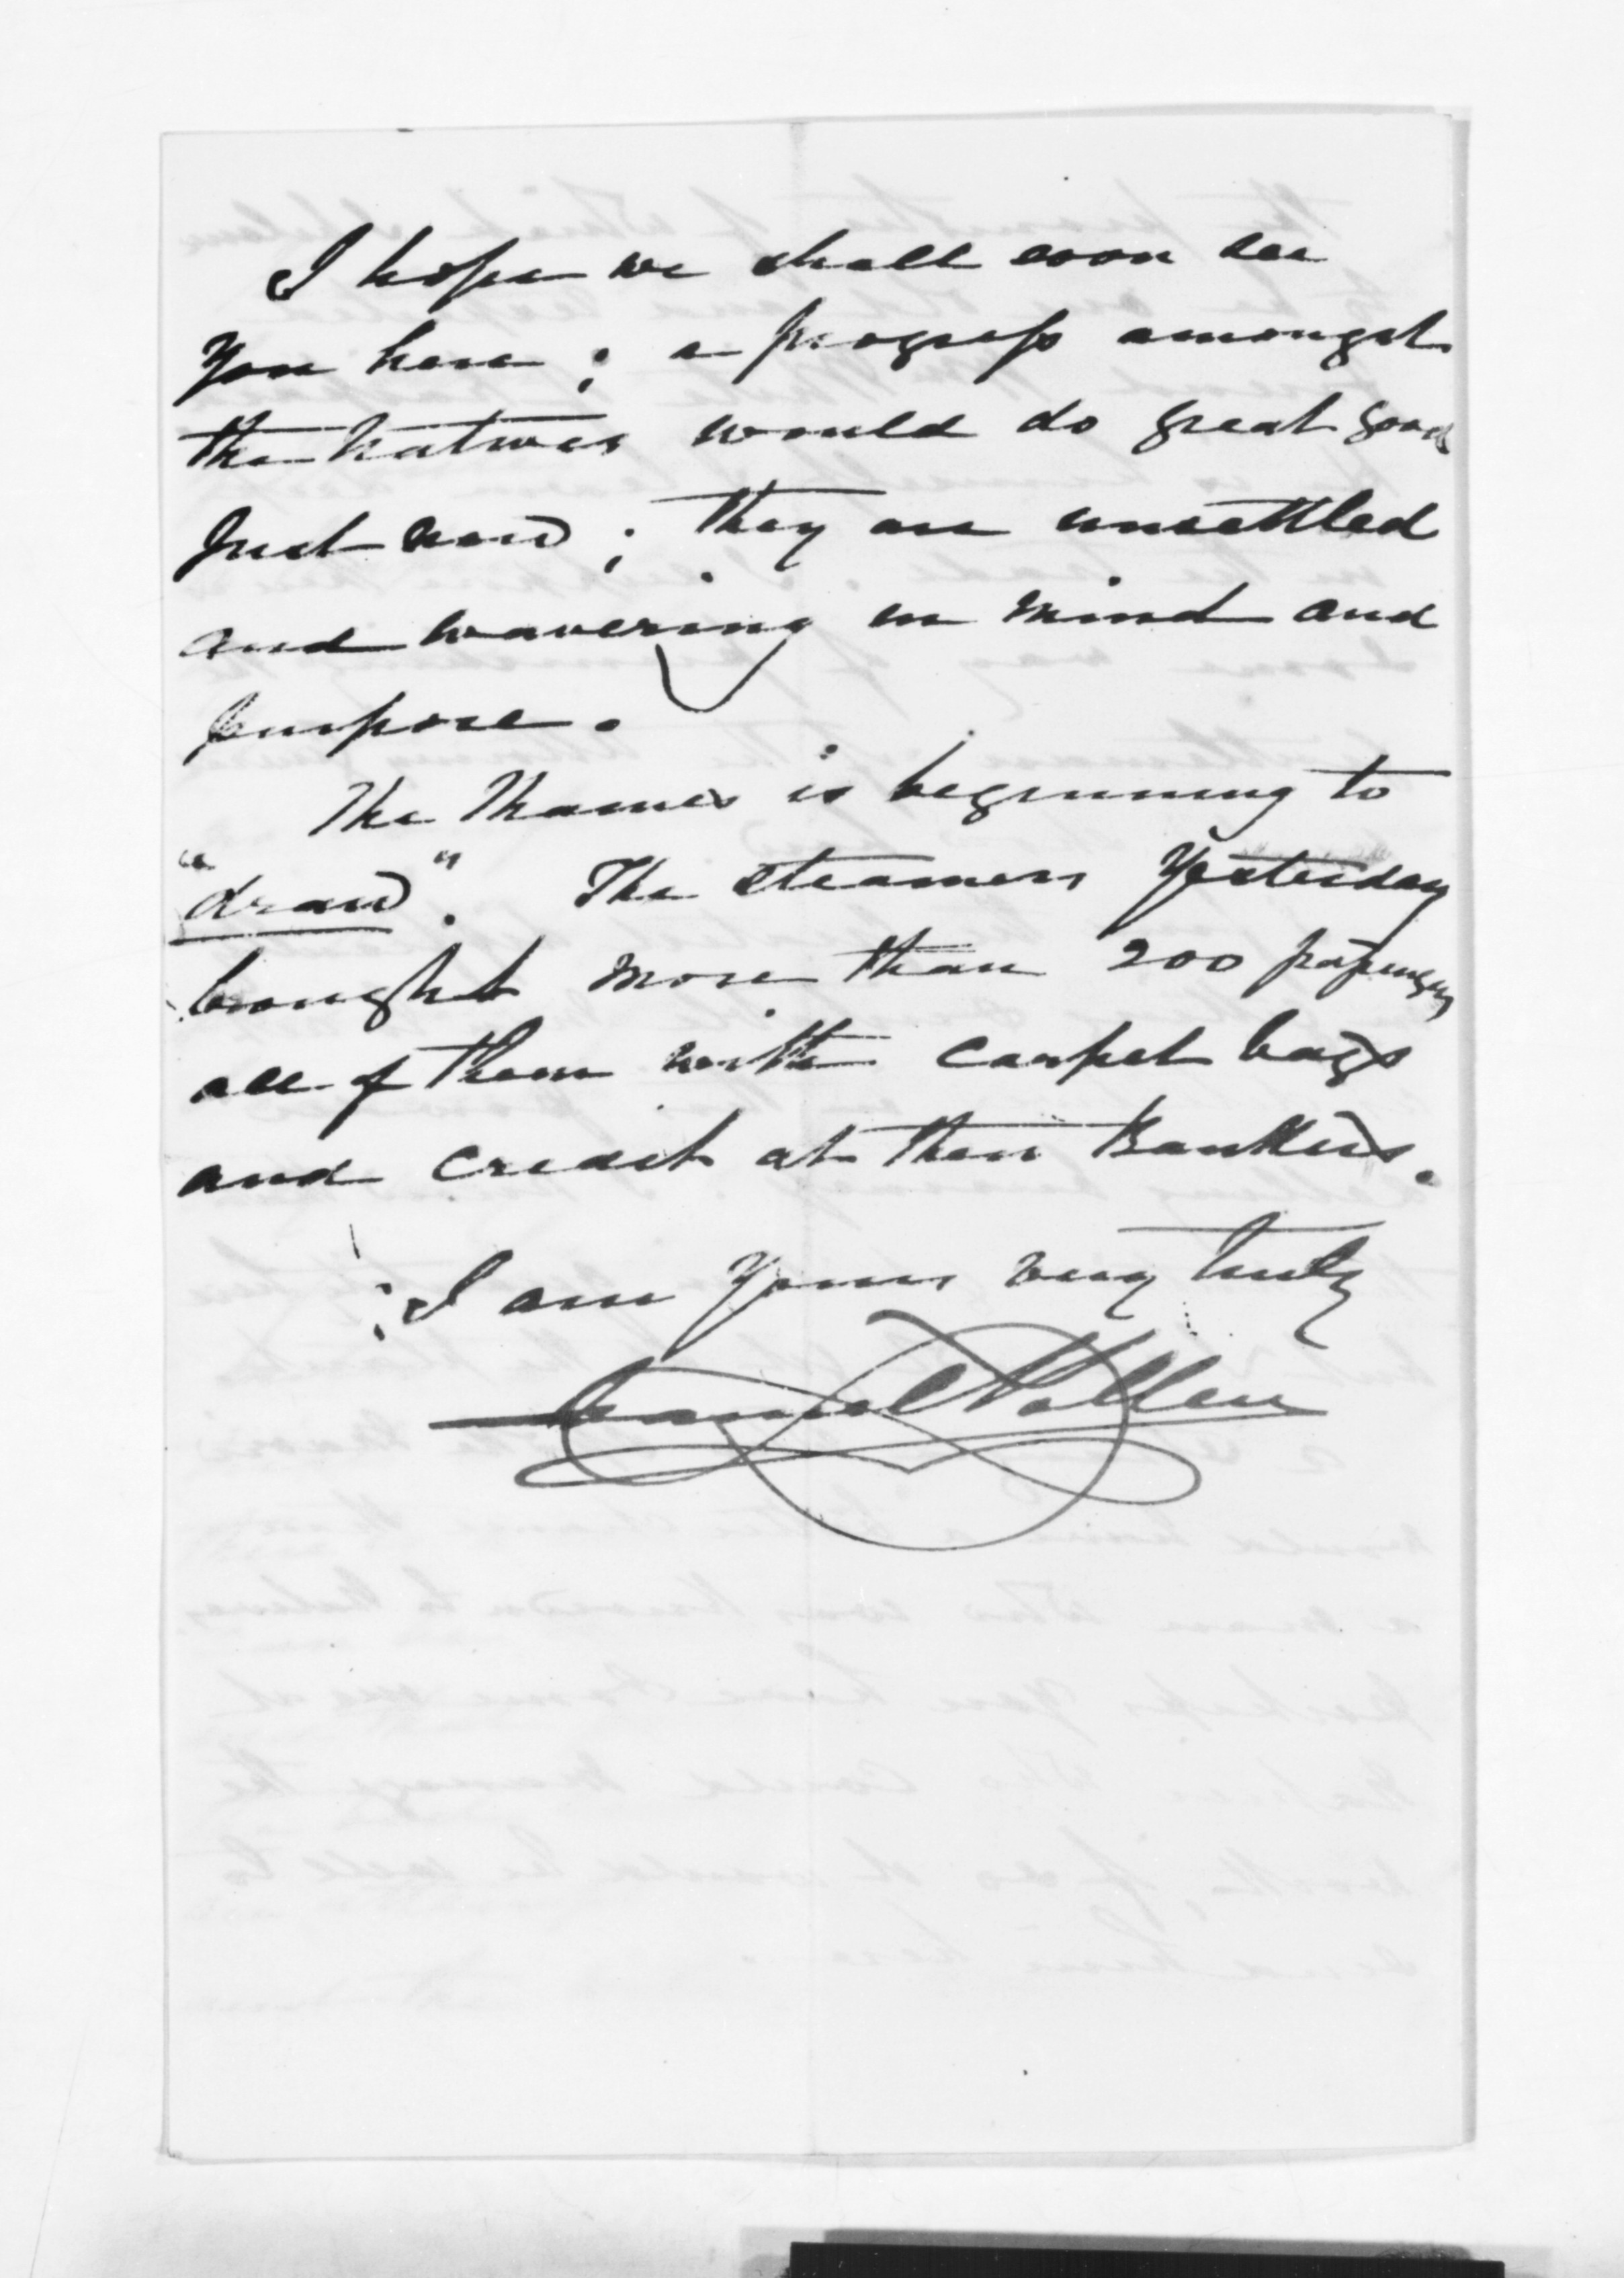 I hope we shall soon see
you here; a progress amongst
the Natives would do great good
just now; they are unsettled
and wavering in mind and
purpose.
The Thames is beginning to
"draw". The steamers yesterday
brought more than 200 passengers
all of them with carpet bags
and credit at their Bankers.
I am yours very truly
Daniel Pollen